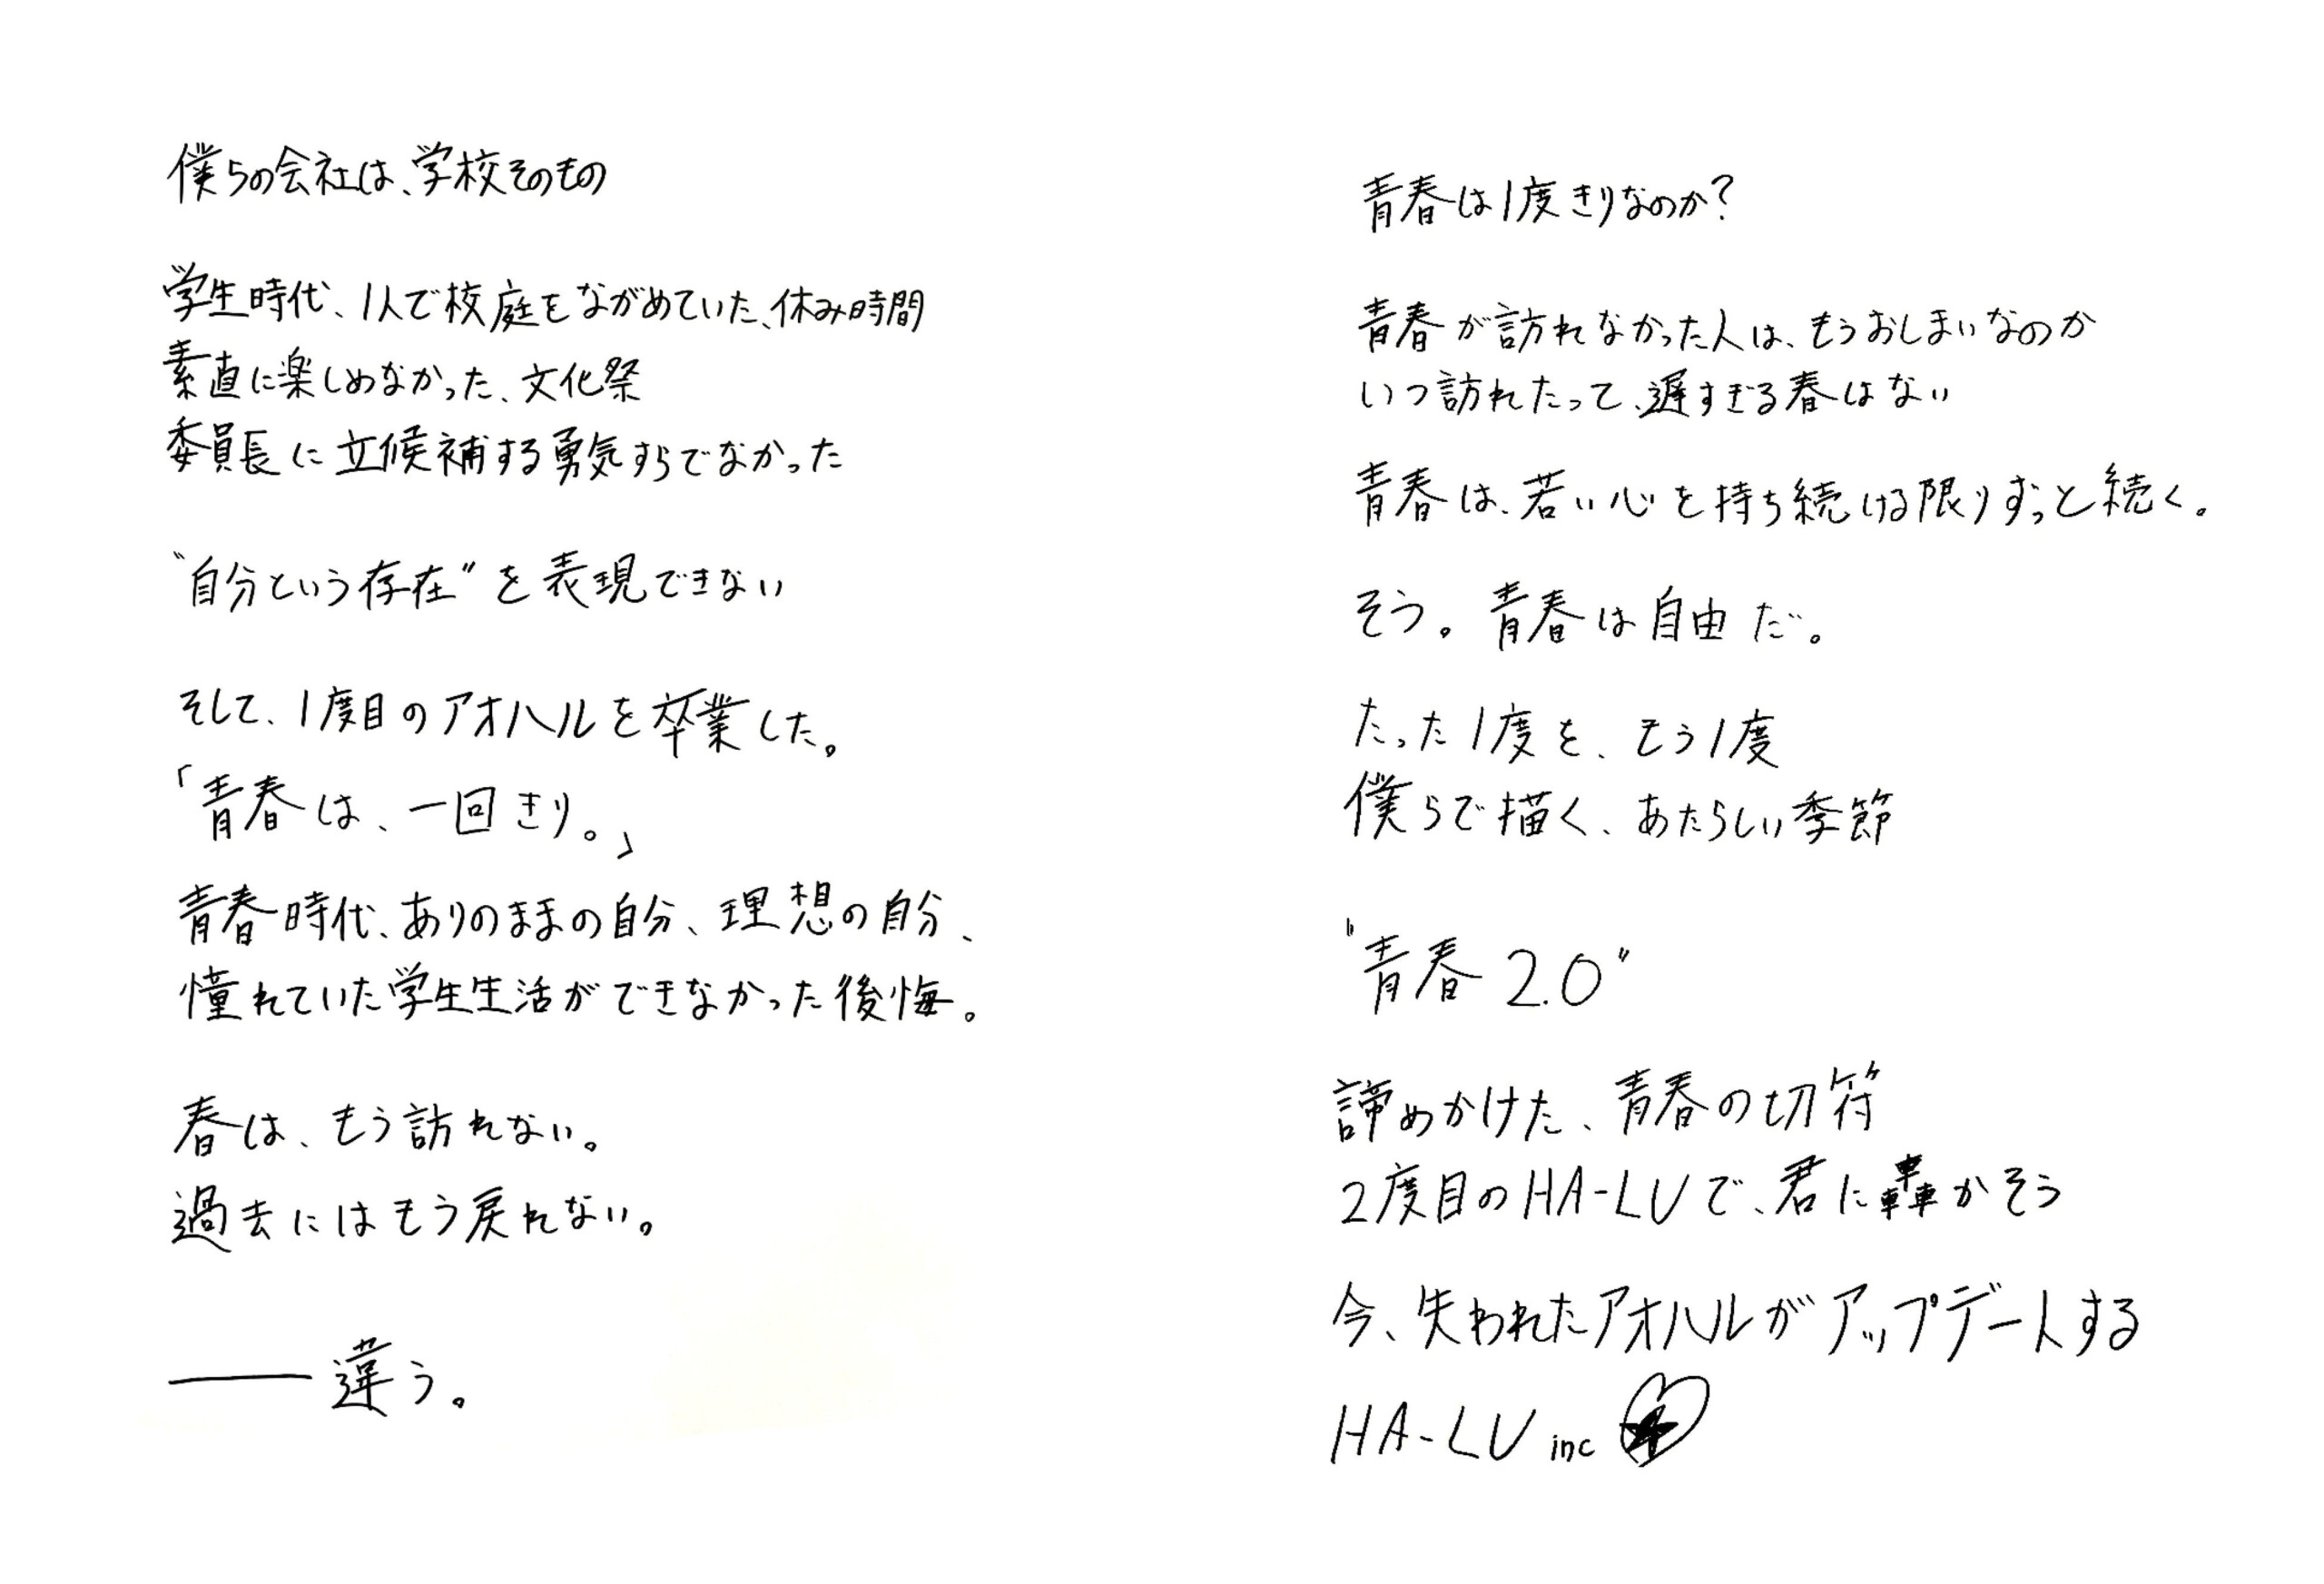 僕らの会社は、学校そのもの
学生時代、1人で校庭をながめていた、休み時間
素直に楽しめなかった、文化祭
委員長に立候補する勇気すらでなかった
“自分という存在”を表現できない
そして、1度目のアオハルを卒業した。
「青春は、一回きり。」
青春時代、ありのままの自分、理想の自分、
憧れていた学生生活ができなかった後悔。
春は、もう訪れない。
過去にはもう戻れない。
――違う。
青春は1度きりなのか?
青春が訪れなかった人は、もうおしまいなのか
いつ訪れたって、遅すぎる春はない
青春は、若い心を持ち続ける限りずっと続く。
そう。青春は自由だ。
たった1度を、もう1度
僕らで描く、あたらしい季節
“青春2.0”
諦めかけた、青春の切符
2度目のHA-LUで、君に轟かそう
今、失われたアオハルがアップデートする
HA-LU inc